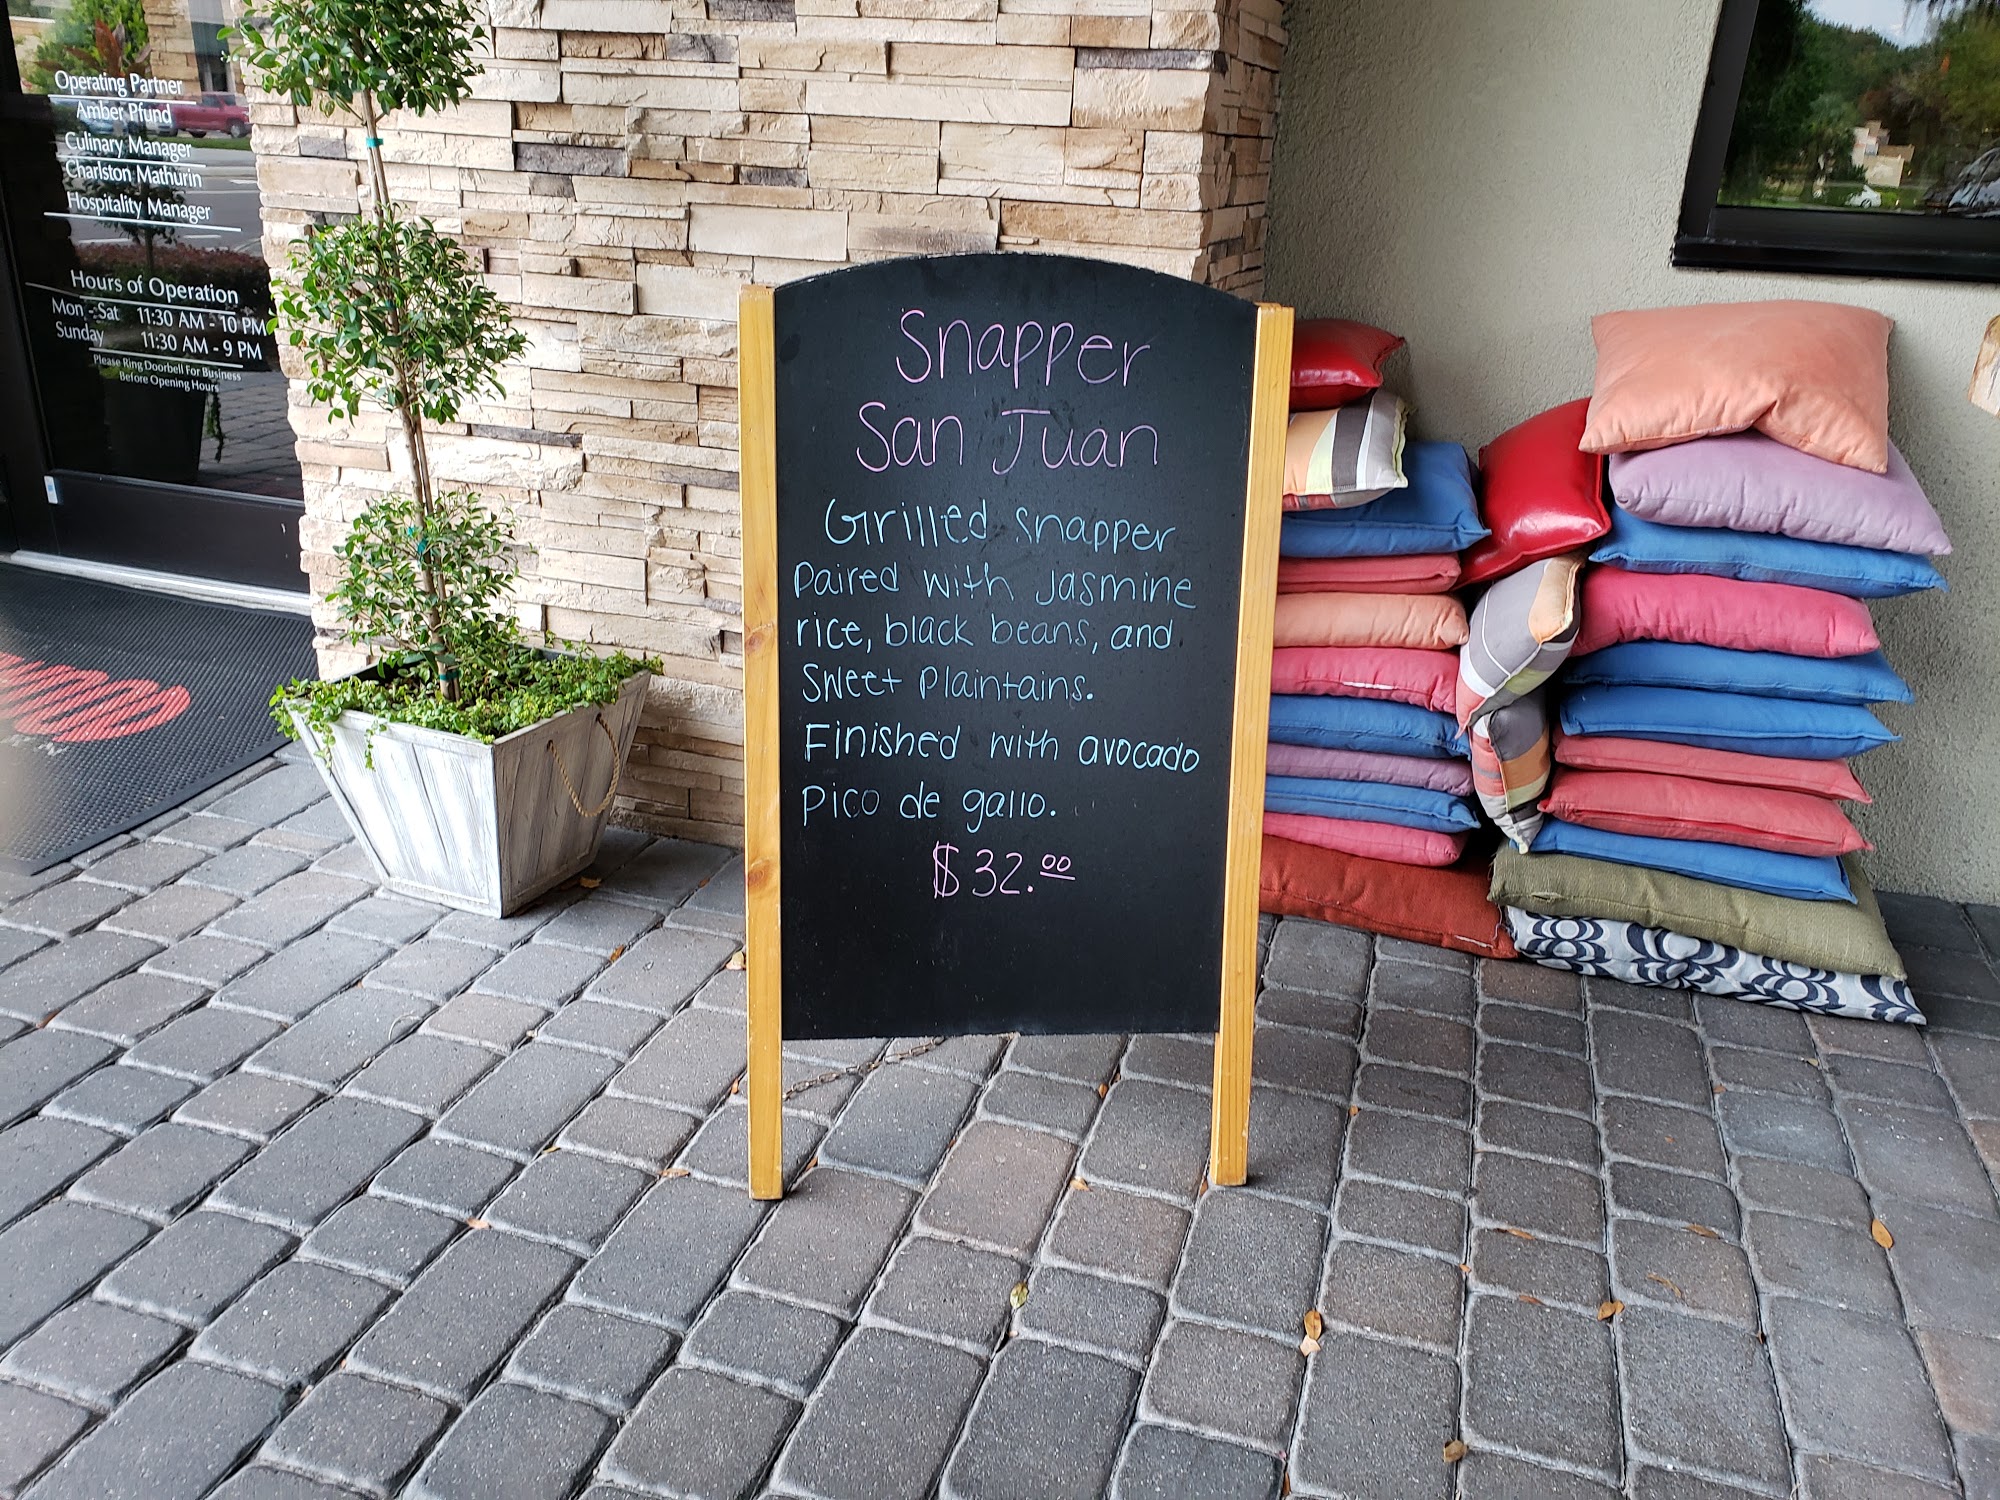 Operating Partner
Amber Pfund
Culinary Manager
Charlston Mathurin
Hospitality Manager
Hours of Operation
Mon - Sat 11:30 AM - 10 PM
Sunday 11:30 AM - 9 PM
Please Ring Doorbell For Business
Before Opening Hours
Snapper
San Juan
Grilled snapper
paired with jasmine
rice, black beans, and
sweet plaintains.
Finished with avocado
pico de gallo.
$32.00